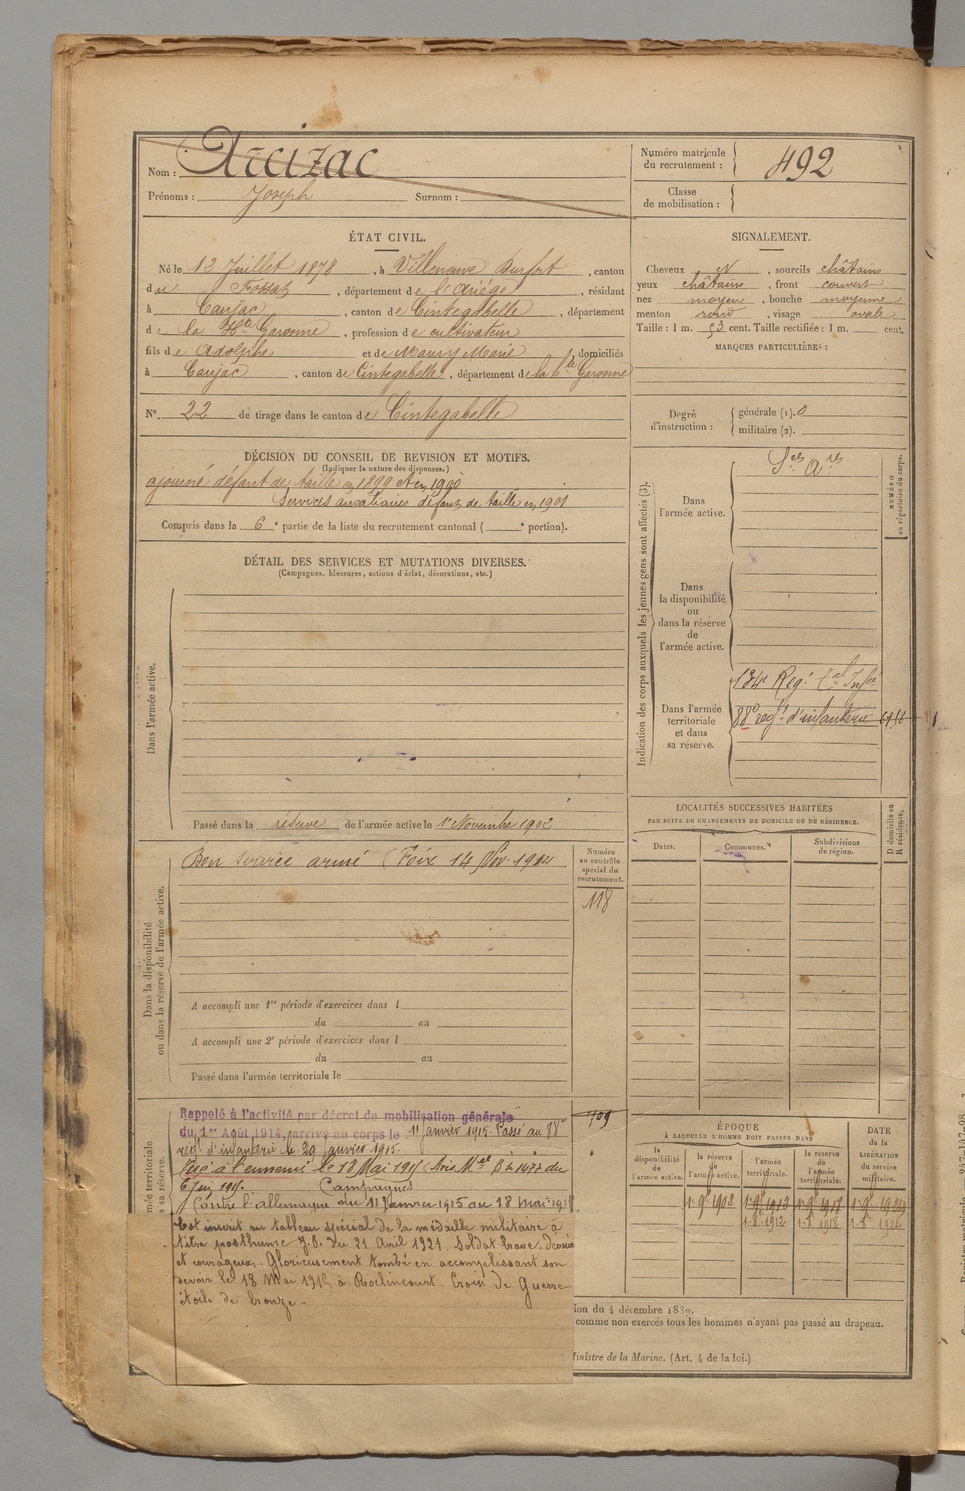 Nom : Arcizac
Prénoms : Joseph Surnom :
Numéro matricule du recrutement : 492
Classe de mobilisation :
ÉTAT CIVIL.
Né le 12 Juillet 1878, à Villeneuve Durfort, canton
du Fossat, département de l'Ariège, résidant
à Caujac, canton de Cintegabelle, département
de la Hte Garonne, profession de cultivateur
fils de Adolphe et de Maury Marie, domiciliés
à Caujac, canton de Cintegabelle, département de la Hte Garonne
N° 22 de tirage dans le canton de Cintegabelle
SIGNALEMENT.
Cheveux N, sourcils châtains
yeux châtains, front couvert
nez moyen, bouche moyenne
menton rond, visage ovale
Taille : 1 m. 53 cent. Taille rectifiée : 1 m. cent.
MARQUES PARTICULIÈRES :
Degré d'instruction : générale (1). 0
militaire (2).
DÉCISION DU CONSEIL DE REVISION ET MOTIFS.
(Indiquer la nature des dispenses.)
ajourné défaut de taille en 1899 et en 1900
Services auxiliaires défaut de taille en 1901
Compris dans la 6e partie de la liste du recrutement cantonal ( e portion).
DÉTAIL DES SERVICES ET MUTATIONS DIVERSES.
(Campagnes, blessures, actions d'éclat, décorations, etc.)
Dans l'armée active.
Passé dans la réserve de l'armée active le 1er Novembre 1902
Indication des corps auxquels les jeunes gens sont affectés (3).
NUMÉRO au répertoire du corps.
Dans l'armée active.
Ses Ares
Dans la disponibilité ou dans la réserve de l'armée active.
Dans l'armée territoriale et dans sa réserve.
134e Reg. tal Infie
88e regt d'infanterie
LOCALITÉS SUCCESSIVES HABITÉES
PAR SUITE DE CHANGEMENTS DE DOMICILE OU DE RÉSIDENCE.
Dates. Communes. Subdivisions de région.
D domicile ou R résidence.
Dans la disponibilité ou dans la réserve de l'armée active.
Bon service armé (Foix 14 Nov. 1914
Numéro au contrôle spécial du recrutement.
118
A accompli une 1re période d'exercices dans l
du au
A accompli une 2e période d'exercices dans l
du au
Passé dans l'armée territoriale le
Rappelé à l'activité par décret de mobilisation générale
du 1er Août 1914, arrivé au corps le 11 janvier 1915. Passé au 88e
régt d'infanterie le 29 janvier 1915.
Tué à l'ennemi le 18 Mai 1915 Avis Mel B 1477 du
6 Juin 1915. Campagnes
Contre l'allemagne du 11 Janvier 1915 au 18 mai 1915
Est inscrit au tableau spécial de la médaille militaire à
titre posthume J.O. du 21 Avril 1921. Soldat brave, dévoué
et courageux. Glorieusement tombé en accomplissant son
devoir le 18 Mai 1915 à Roclincourt. Croix de Guerre
étoile de bronze.
709
ÉPOQUE
À LAQUELLE L'HOMME DOIT PASSER DANS
la disponibilité de l'armée active. la réserve de l'armée active. l'armée territoriale. la réserve de l'armée territoriale.
DATE de la LIBÉRATION du service militaire.
1-8-1912 1-8-1918
ion du 4 décembre 1889.
comme non exercés tous les hommes n'ayant pas passé au drapeau.
Ministre de la Marine. (Art. 4 de la loi.)